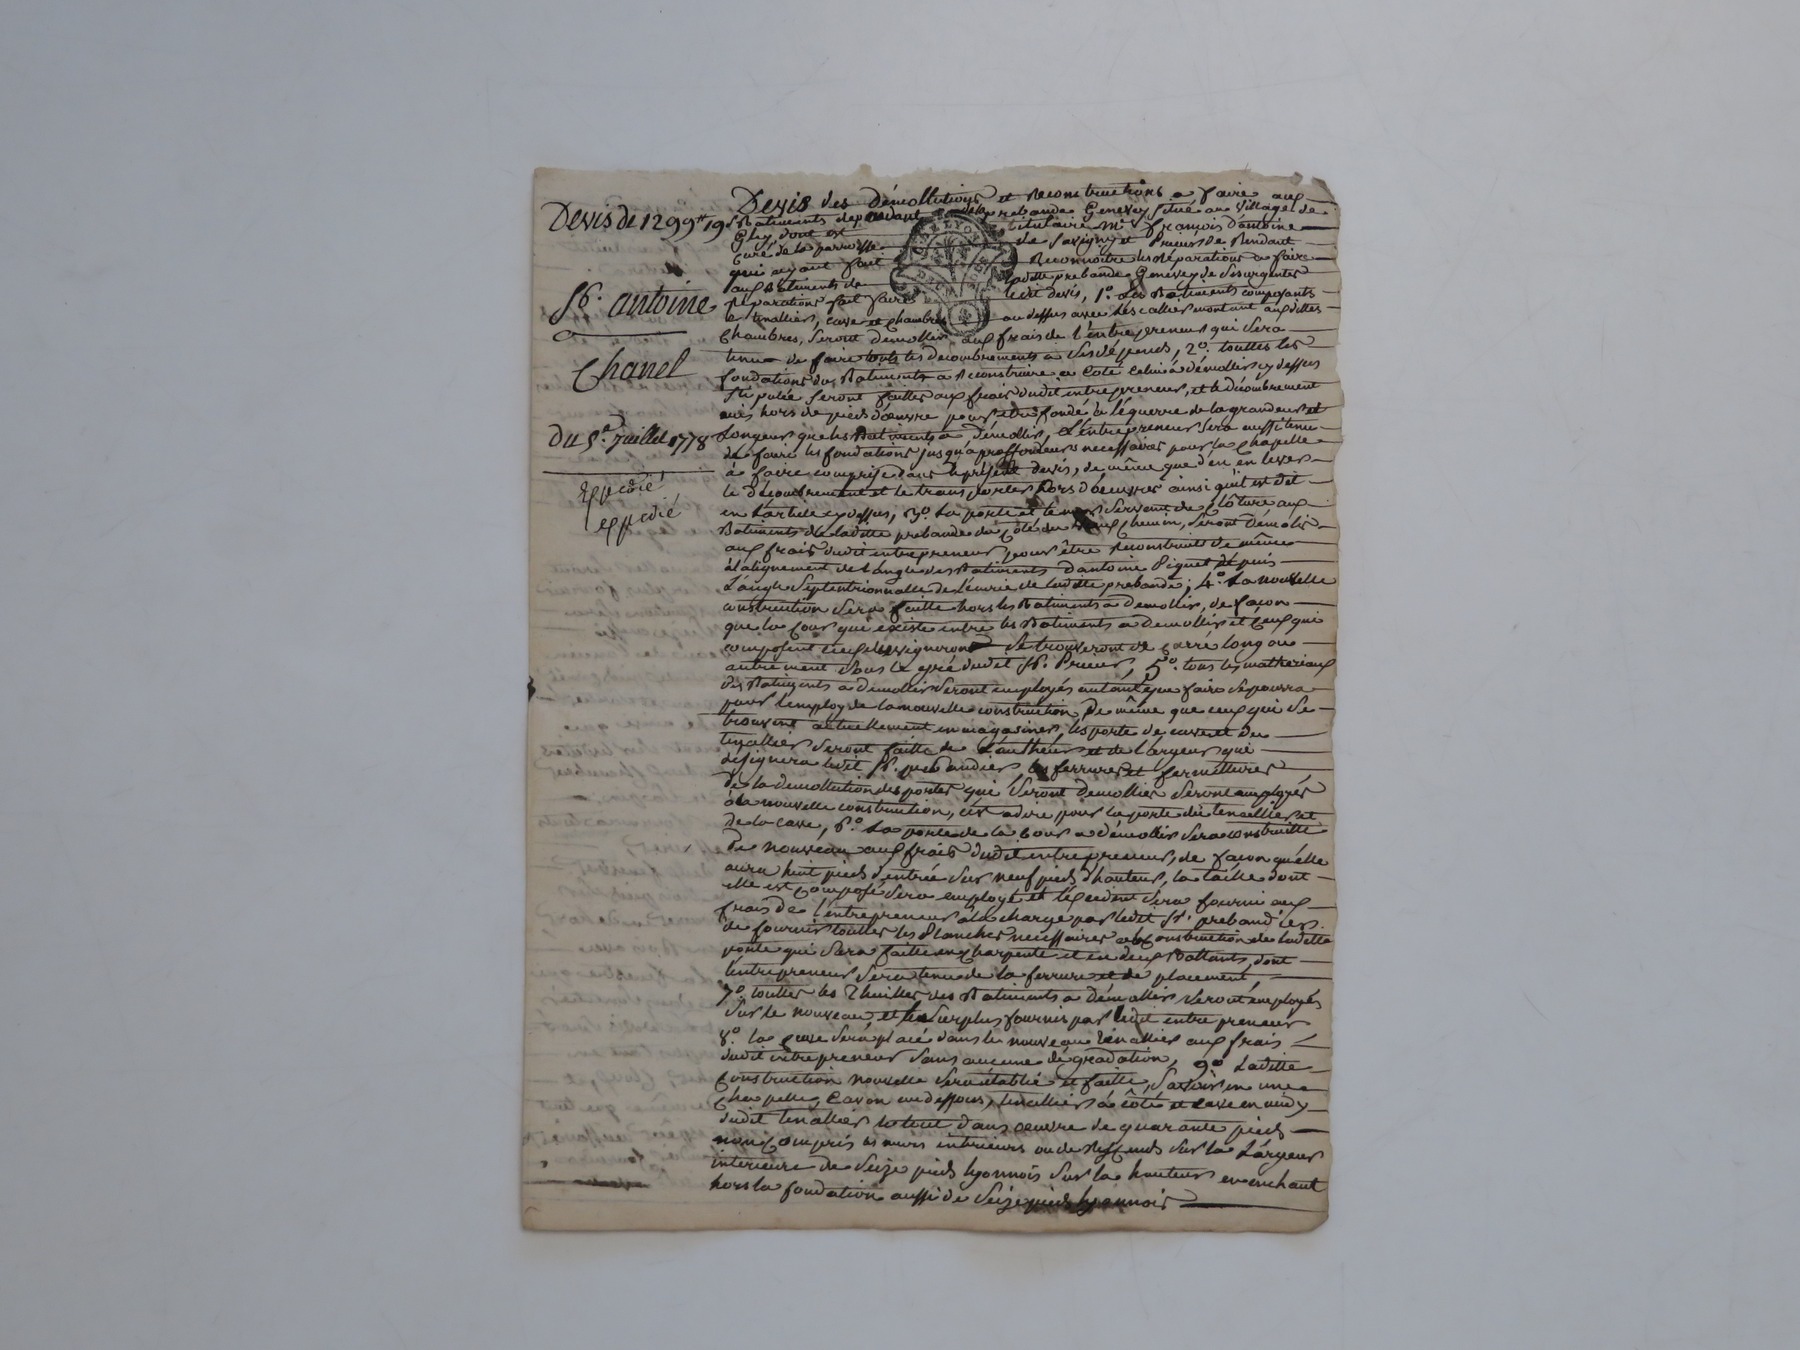 Devis de 1299tt 19s
Sr. antoine
Chanel
du 5e. Juillet 1778
Expedié
expedié
Devis des démollitions et Reconstructions a faire aux
Batiments dependant de la prebande Genevey situé au village de
Gley dont est titulaire Mr. françois d'antoine
Curé de la parroisse de Savigny et Prieur de Rendant
qui ayant fait Reconnoitre les Réparations a faire
aux Batiments de laditte prebande Genevey de Ses urgentes
Réparations fait faire ledit devis, 1o. Les Batiments composants
le tinallier, cave et chambres au dessus avec les calliers montant auxdittes
Chambres, seront démollies aux frais de l'entrepreneur qui sera
tenu de faire touts les decombrements a ses dépends, 2o. touttes les
fondations des Batiments a Reconstruire a coté celui a démollir cy dessus
stipulée seront faittes aux frais dudit entrepreneur, et le décombrement
mis hors de pieds d'œuvre pour etre fondé à l'équerre de la grandeur et
Longeur que les Batiments a démollir, L'entrepreneur sera aussi tenu
de faire les fondations jusqu'a proffondeur necessaires pour la chapelle
à faire comprise dans le présent devis, de même que d'en enlever
le décombrement et le transporter hors d'œuvres ainsi qu'il est dit
en l'article cy dessus, 3o. La porte et le mur servant de clôture aux
Batiments de laditte prebande du côté du vieux chemin, seront démolis
aux frais dudit entrepreneur pour être Reconstruits de même
à l'alignement de l'angle des Batiments d'antoine Piguet depuis
L'angle septentrionnalle de l'écurie de laditte prebande; 4o. La nouvelle
construction sera faitte hors les Batiments a demollir, de façon
que la Cour qui existe entre les Batiments a demollir et ceux qui
composent se trouveront de carré long ou
autrement sous le gré dudit Sr. Prieur, 5o. tous les matheriaux
des Batiments a demollir seront employés autant que faire se pourra
pour l'employ de la nouvelle construction, de même que ceux qui se
trouvent actuellement en magasiner, les porte de cave et du
tinallier seront faitte de L'autheur et de Largeur que
désignera ledit Sr. prebandier les ferrures et fermettures
de la démollution des portes qui seront demollies seront employés
à la nouvelle construction, c'est a dire pour la porte du tinaillier et
de la cave, 6o. La porte de la Cour a démollir sera construitte
De nouveau aux frais dudit entrepreneur, de façon qu'elle
aura huit pieds d'entrée sur neuf pieds d'hauteur, la taille dont
elle est composé sera employé et l'excedent sera fourni aux
frais de l'entrepreneur à la charge par ledit Sr. prebandier
de fournir touttes les Planches necessaires a la Construction de laditte
porte qui sera faitte en charpente et en deux Battants, dont
l'entrepreneur sera tenu de la ferrure et de placement,
7o. touttes les Thuilles des Batiments a démollir seront employés
sur le nouveau et le surplus fournis par ledit entrepreneur
8o. la cuve sera placé dans le nouveau tinallier aux frais
dudit entrepreneur sans aucune dégradation, 9o Laditte
Construction nouvelle sera établie et faitte, Savoir en une
Chapelle, Cavon au dessous, tinallier à côté et cave en midy
dudit tinallier le tout dans œuvre de quarante pieds
non Compris les murs interieurs ou de Reffends sur la Largeur
interieure de seize pieds lyonnois sur la hauteur en enchant
hors la fondation aussi de seize pieds lyonnois